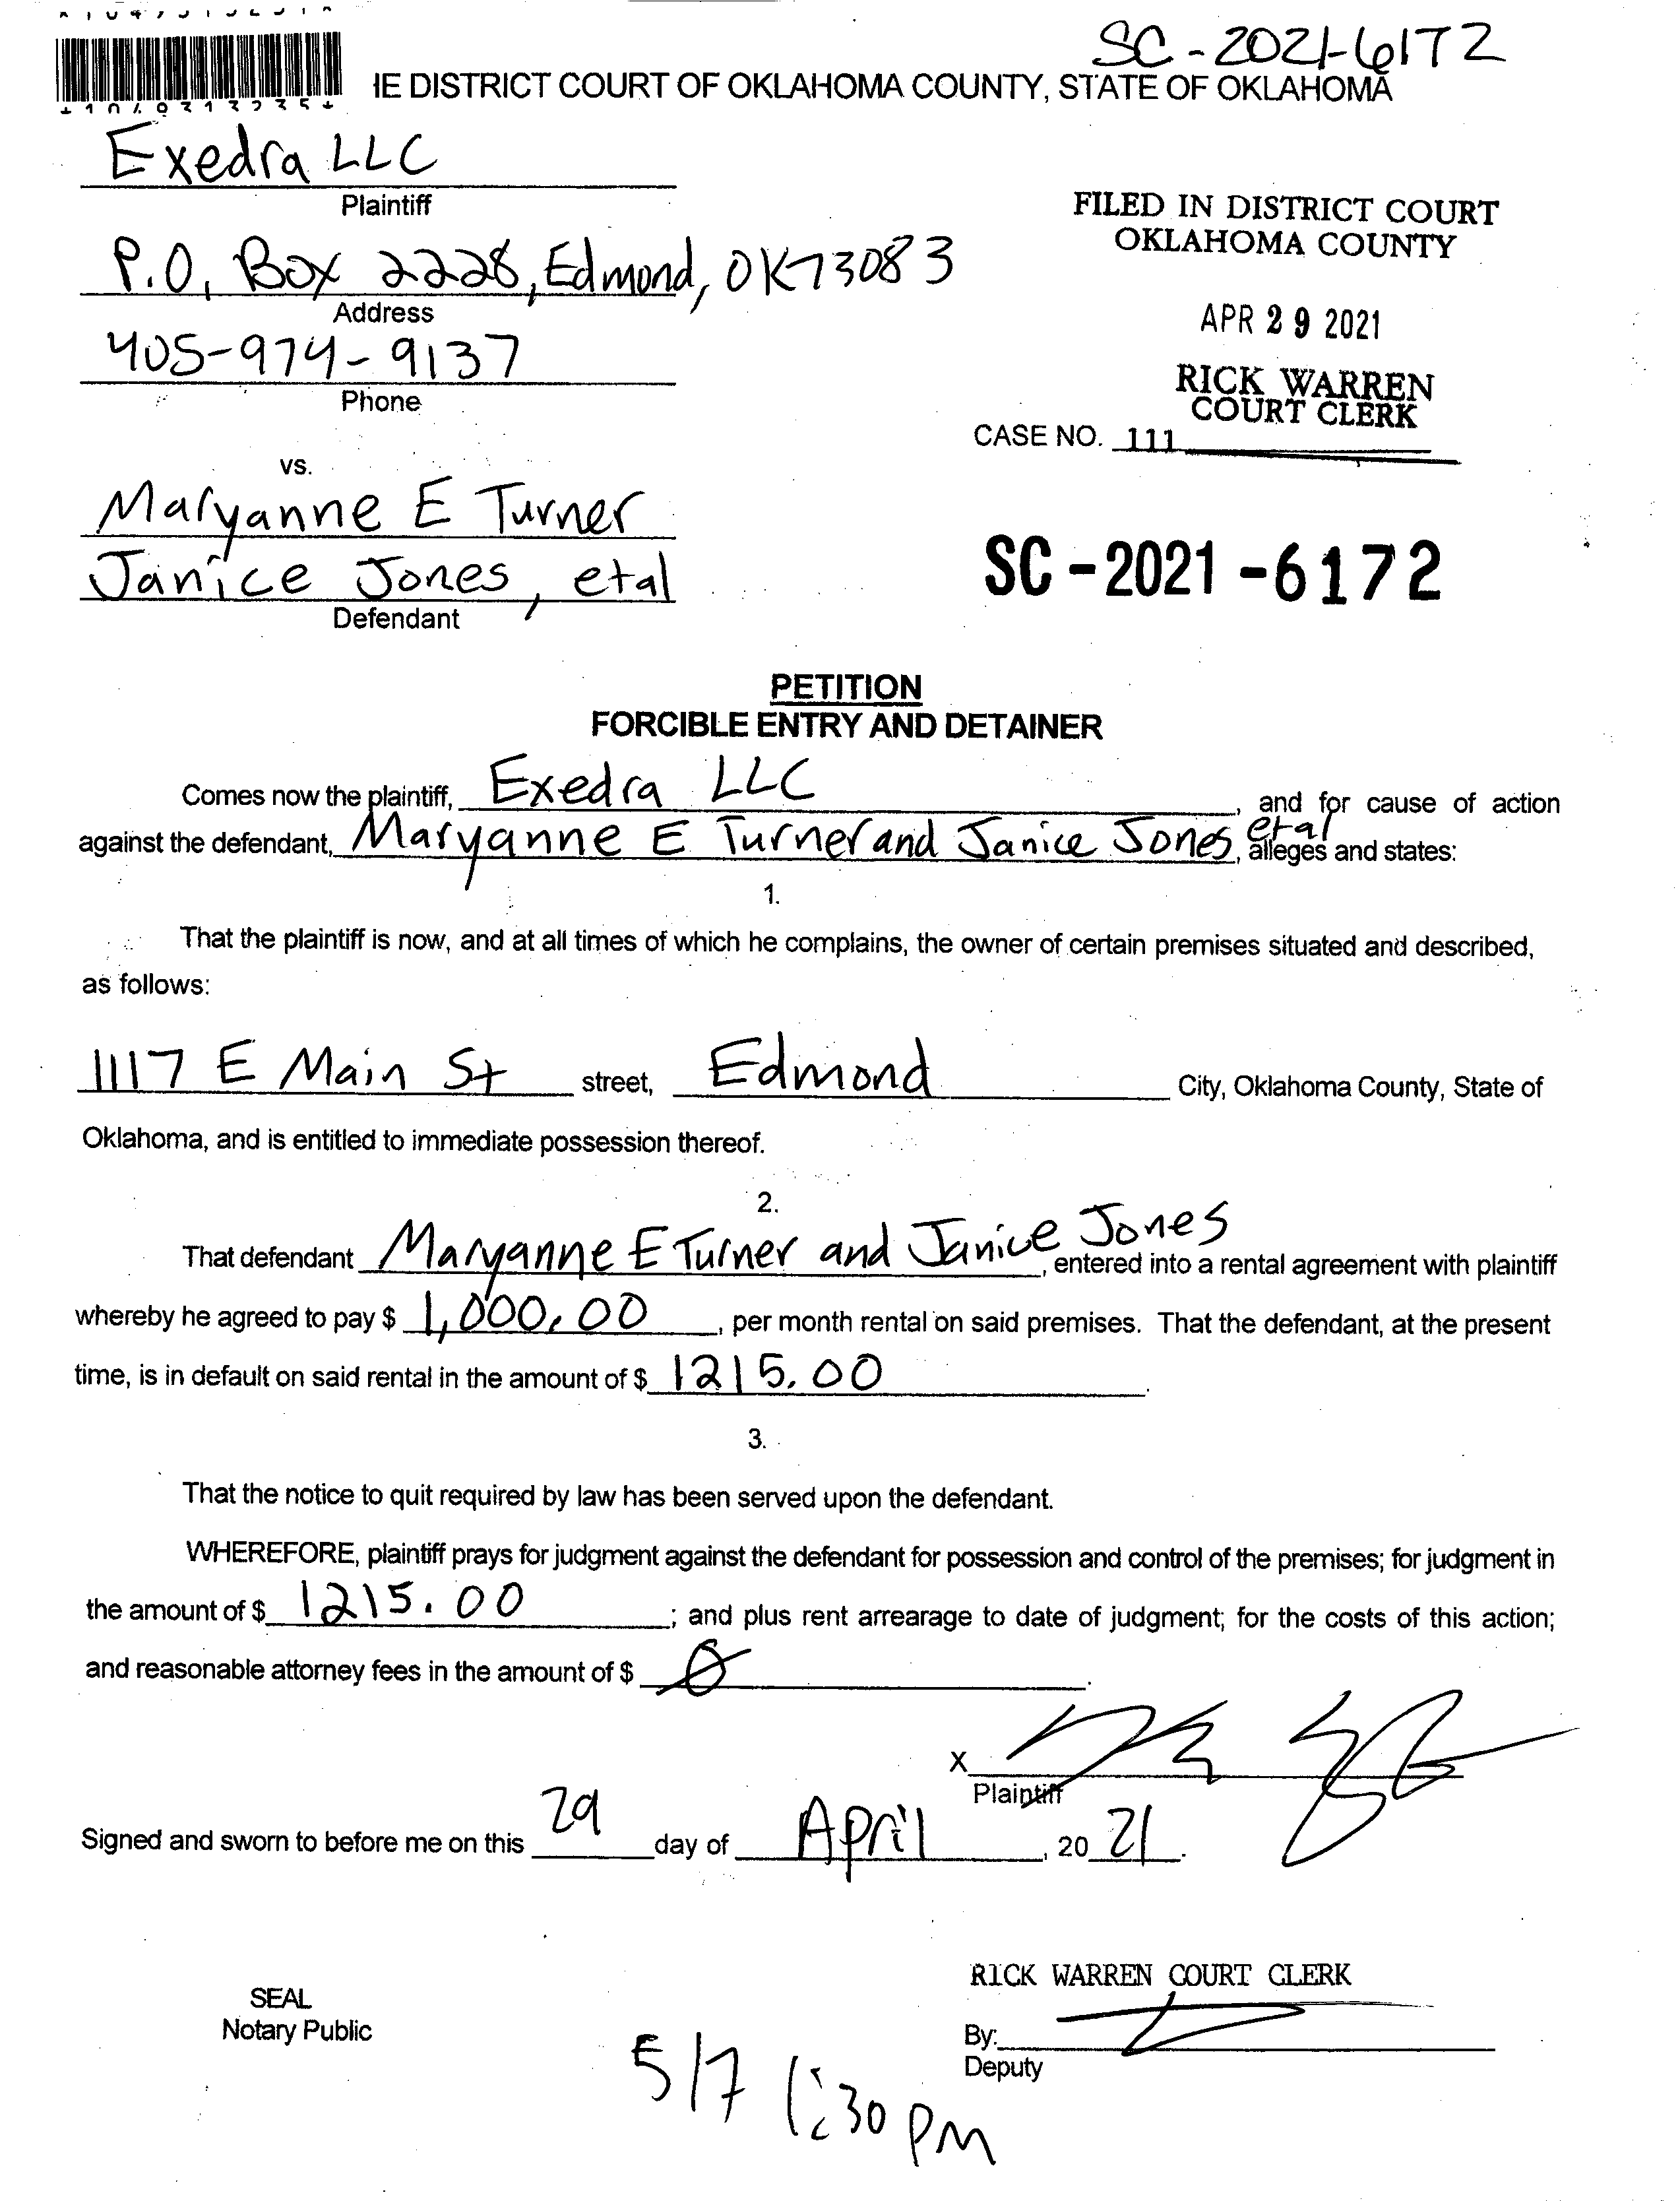 SC-2021-6172
IE DISTRICT COURT OF OKLAHOMA COUNTY, STATE OF OKLAHOMA
Exedra LLC
Plaintiff
FILED IN DISTRICT COURT
OKLAHOMA COUNTY
P.O. Box 2228, Edmond, OK 73083
Address
APR 29 2021
405-974-9137
Phone
RICK WARREN
COURT CLERK
CASE NO. 111
vs.
Maryanne E Turner
Janice Jones, etal
Defendant
SC-2021-6172
PETITION
FORCIBLE ENTRY AND DETAINER
Comes now the plaintiff, Exedra LLC, and for cause of action
against the defendant, Maryanne E Turner and Janice Jones, etal, alleges and states:
1.
That the plaintiff is now, and at all times of which he complains, the owner of certain premises situated and described,
as follows:
1117 E Main St street, Edmond City, Oklahoma County, State of
Oklahoma, and is entitled to immediate possession thereof.
2.
That defendant Maryanne E Turner and Janice Jones, entered into a rental agreement with plaintiff
whereby he agreed to pay $ 1,000.00, per month rental on said premises. That the defendant, at the present
time, is in default on said rental in the amount of $ 1215.00.
3.
That the notice to quit required by law has been served upon the defendant.
WHEREFORE, plaintiff prays for judgment against the defendant for possession and control of the premises; for judgment in
the amount of $ 1215.00; and plus rent arrearage to date of judgment; for the costs of this action;
and reasonable attorney fees in the amount of $ 0.
X
Plaintiff
Signed and sworn to before me on this 29 day of April, 2021.
RICK WARREN COURT CLERK
SEAL
Notary Public
By:
Deputy
5/7 1:30 PM